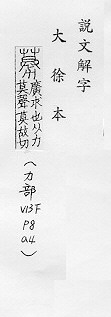 說文解字
大徐本
募 廣求也从力
莫聲莫故切
(力部
V13F
P8
a4)